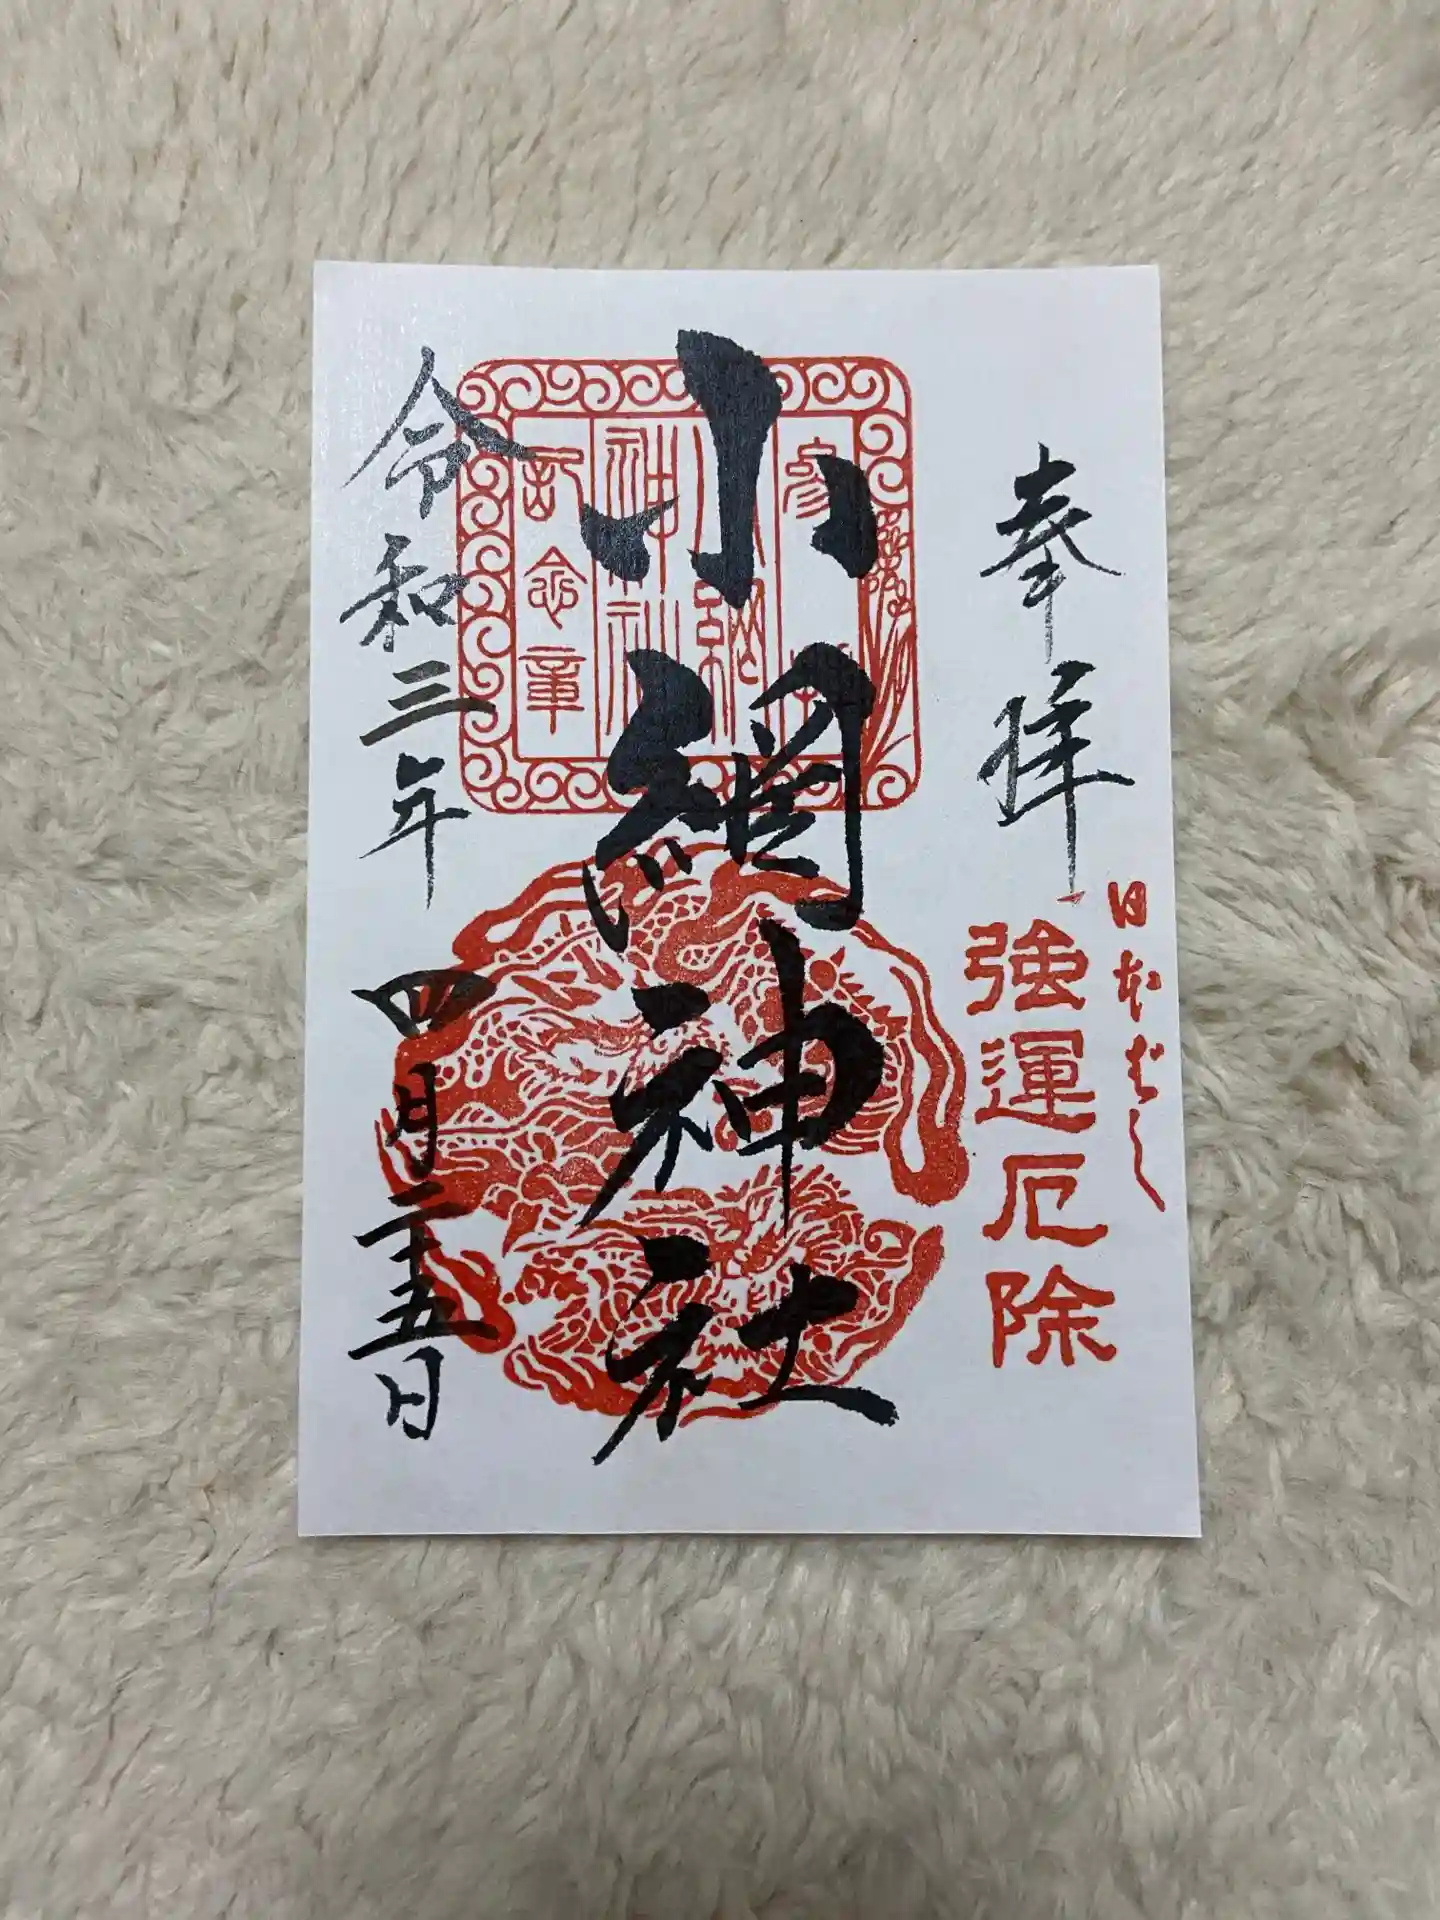 奉拝
日本ばし
強運厄除
小網神社
参拝
小網
神社
記念章
令和三年四月二十五日